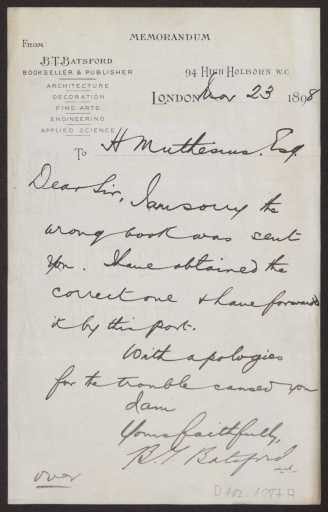 MEMORANDUM
FROM
B.T. BATSFORD
BOOKSELLER & PUBLISHER
ARCHITECTURE
DECORATION
FINE ARTS
ENGINEERING
APPLIED SCIENCE
94 HIGH HOLBORN W.C.
LONDON Nov 23 1898
To H Muthesius. Esq.
Dear Sir, I am sorry the
wrong book was sent
you. I have obtained the
correct one & have forwarded
it by this post.
With apologies
for the trouble caused you
I am
Yours faithfully,
B. T Batsford
over